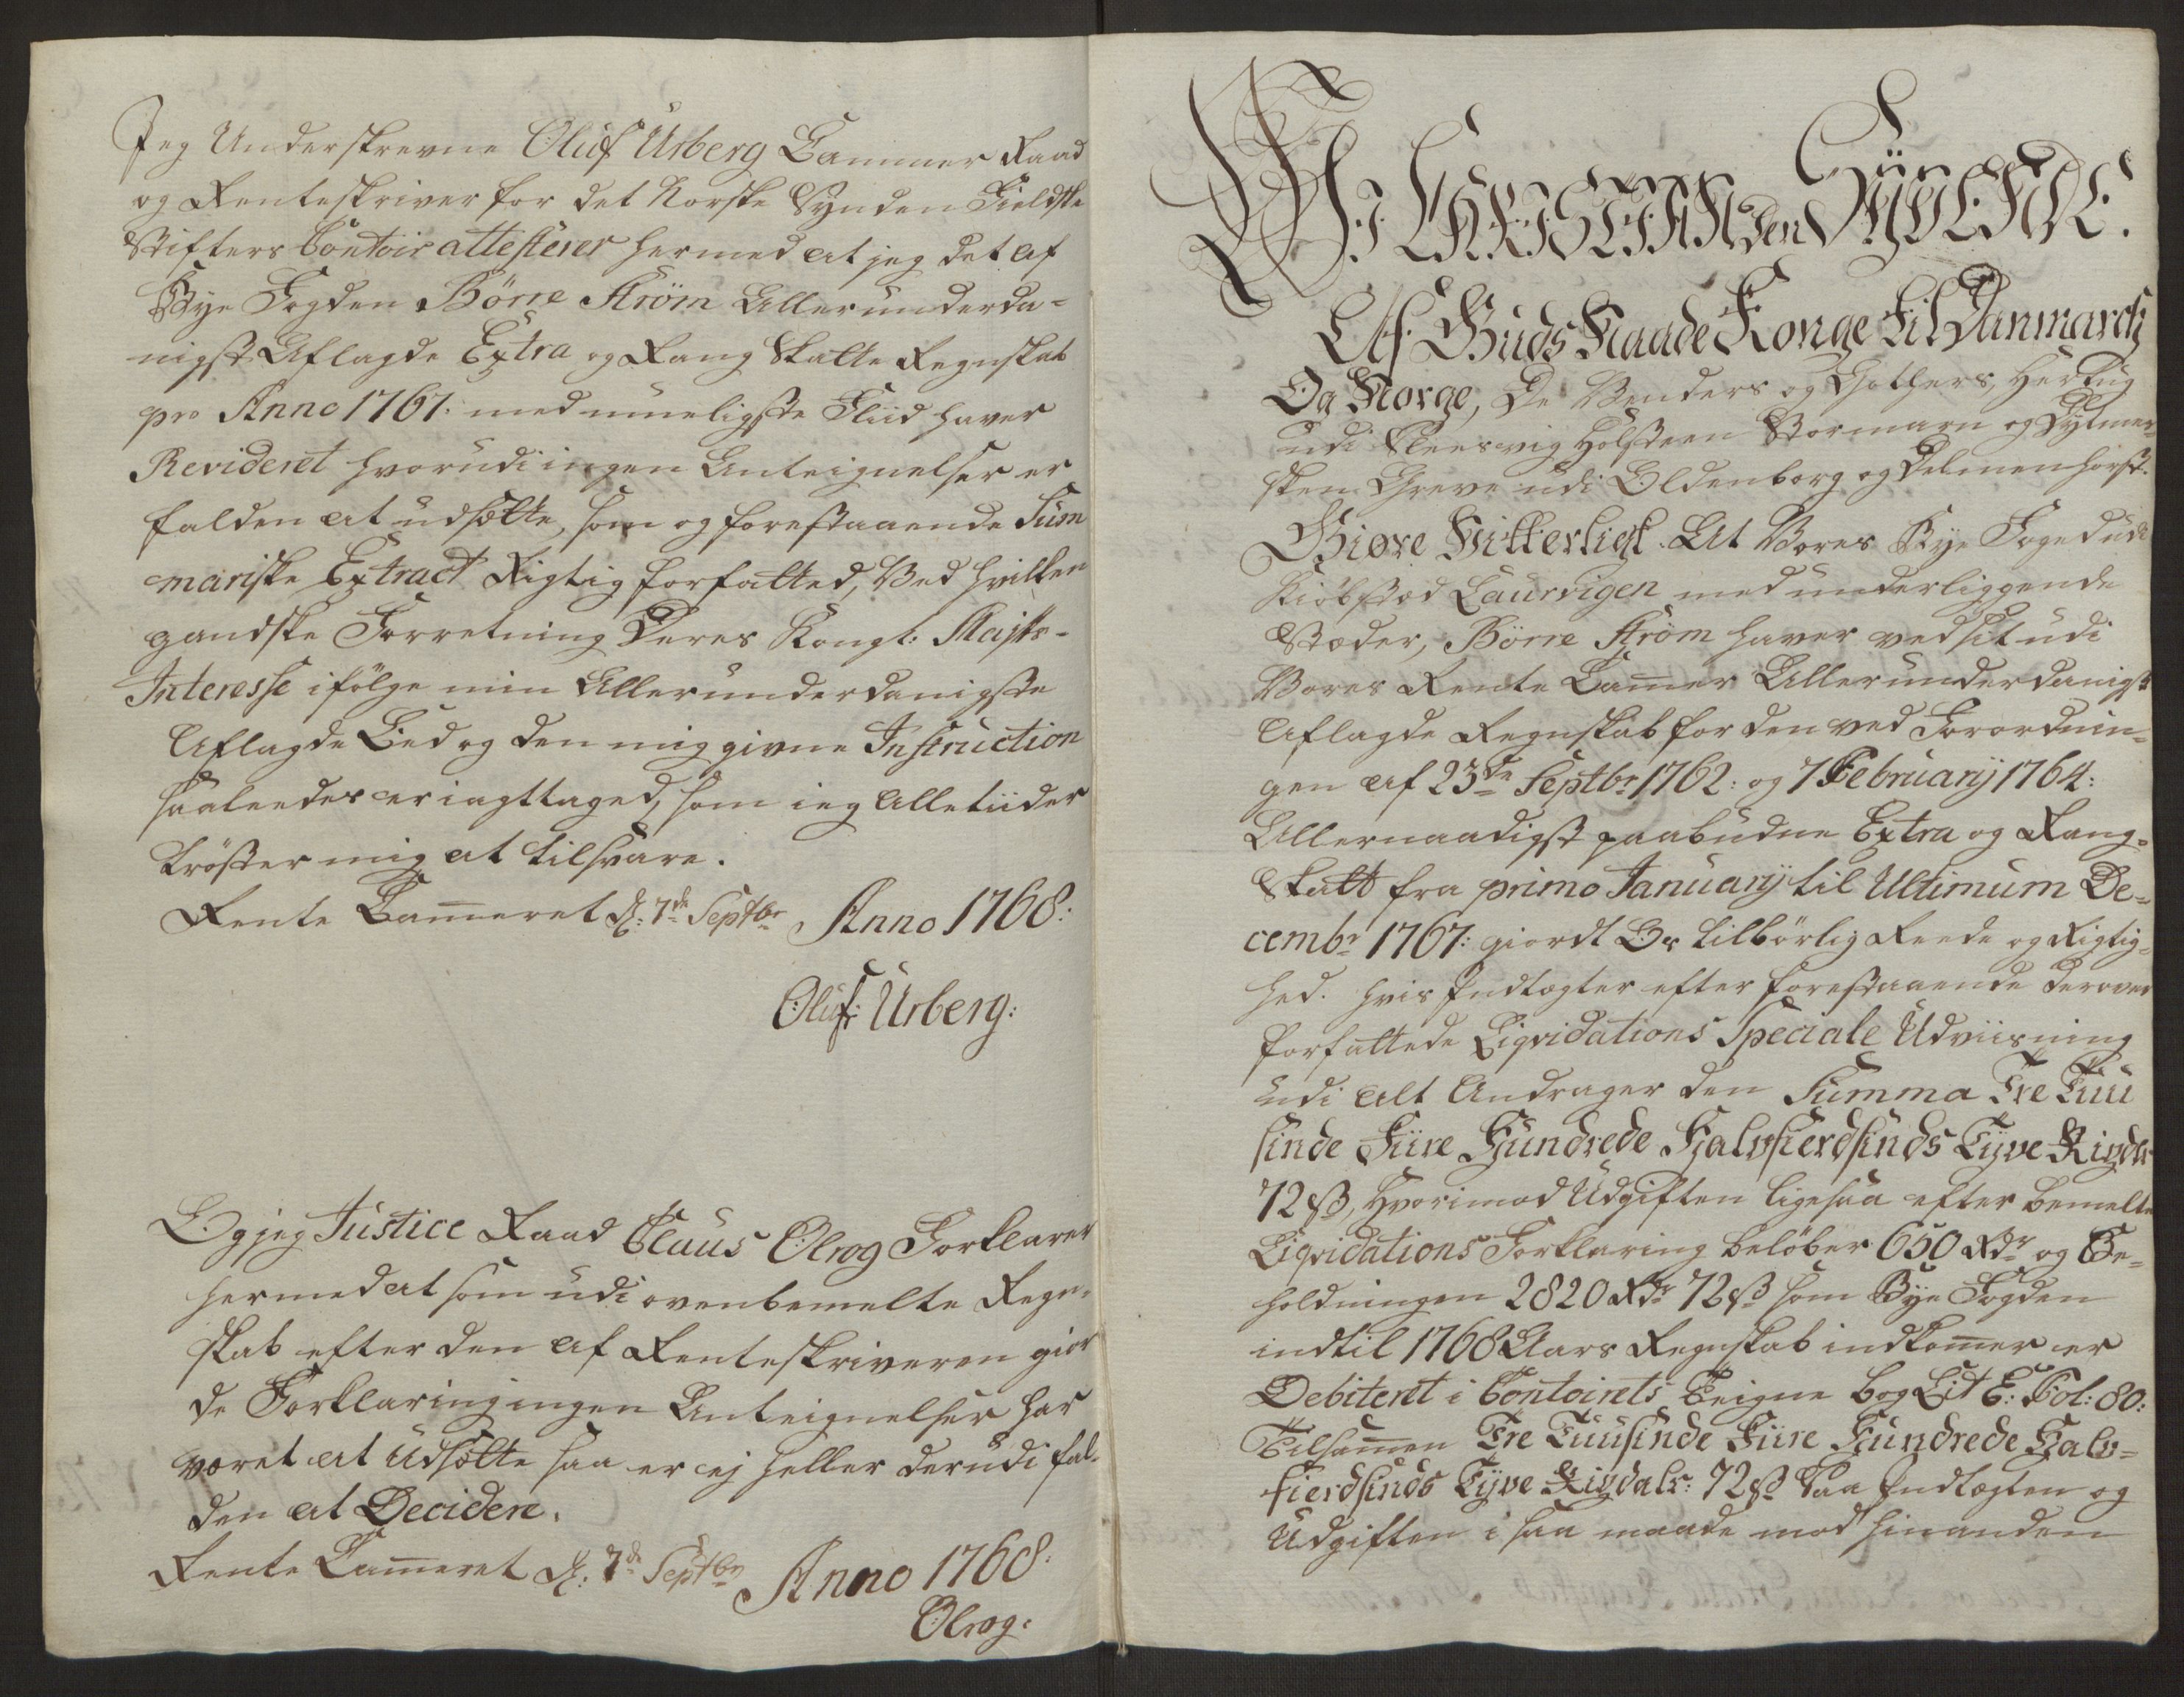 Jeg Underskrevne Oluf Urberg Cammer Raad
og Renteskriver for det Norske Synden Fieldske
Stifters Contoir attesterer hermed at jeg det af
Bye Fogden Börre Ström Allerunderda-
nigst Aflagde Extra og Rang Skatte Regnskab
pro Anno 1767: med mueligste Fliid haver
Revideret hvorudi ingen Anteignelser er
falden at udsætte, som og forestaaende Sum
mariske Extract Rigtig forfatted, Ved hvilken
gandske Forretning Deres Kongl: Majts-
Interesse ifölge min Allerunderdanigste
Aflagde Eed og den mig givne Instruction
saaleedes er iagttaged, som ieg alletiider
tröster mig at tilsvare.
Rente Cammeret d: 7de Septbr Anno 1768:
Oluf: Urberg:
Og jeg Justice Raad Claus Olrog Forklarer
hermed at som udi ovenbemelte Regn-
skab efter den af Renteskriveren gior
de Forklaring ingen Anteignelser har
været at udsætte saa er ej heller derudi fal-
den at Decidere.
Rente Cammeret d: 7de Septbr Anno 1768:
Olrog:
Vi CHRISTIAN den Syvende.
Af Guds Naade Konge Til Danmarck
Og Norge, De Venders og Gothers, Hertug
udi Sleesvig Holsteen Stormarn og Dytmer-
sken Greve udi Oldenborg og Delmenhorst.
Giøre Vitterligt. At Vores Bye Foged udi
Kiöbstæd Laurvigen med underliggende
Stæder, Börre Ström haver ved sit udi
Vores Rente Cammer Allerunderdanigst
Aflagde Regnskab for den ved Forordnin-
gen af 23de Septbr 1762: og 7 February 1764:
Allernaadigst paabudne Extra og Rang-
Skatt fra primo January til Ultimum De-
cembr 1767: giordt Os tilbörlig Reede og Rigtig-
hed. Hvis Indtægter efter forestaaende derover
forfattede Liqvidations Speciale Udviisning
udi alt Andrager den Summa Tre Tuu
sinde Fiire Hundrede Halvfierdsinds Tyve Rigdlr
72 ß, Hvorimod Udgiften ligesaa efter bemelte
Liqvidations Forklaring belöber 650 Rdr og Be-
holdningen 2820 Rdr 72 ß som Bye Fogden
indtil 1768 Aars Regnskab indkommer er
Debiteret i Contoirets Teigne bog Lit E: Fol: 80:
Tilsammen Tre Tuusinde Fiire Hundrede Halv-
fierdsinds Tyve Rigdalr: 72 ß Saa Indtægten og
Udgiften i saa maade mod hinanden